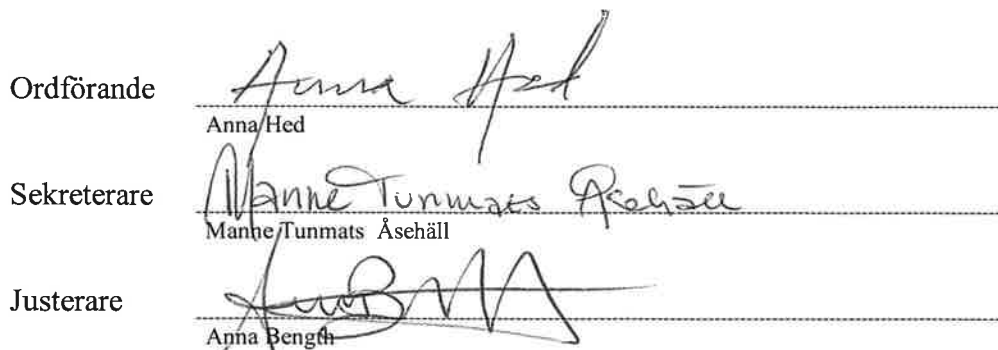 Ordförande Anna Hed
Anna Hed
Sekreterare Manne Tunmats Åsehäll
Manne Tunmats Åsehäll
Justerare
Anna Bength